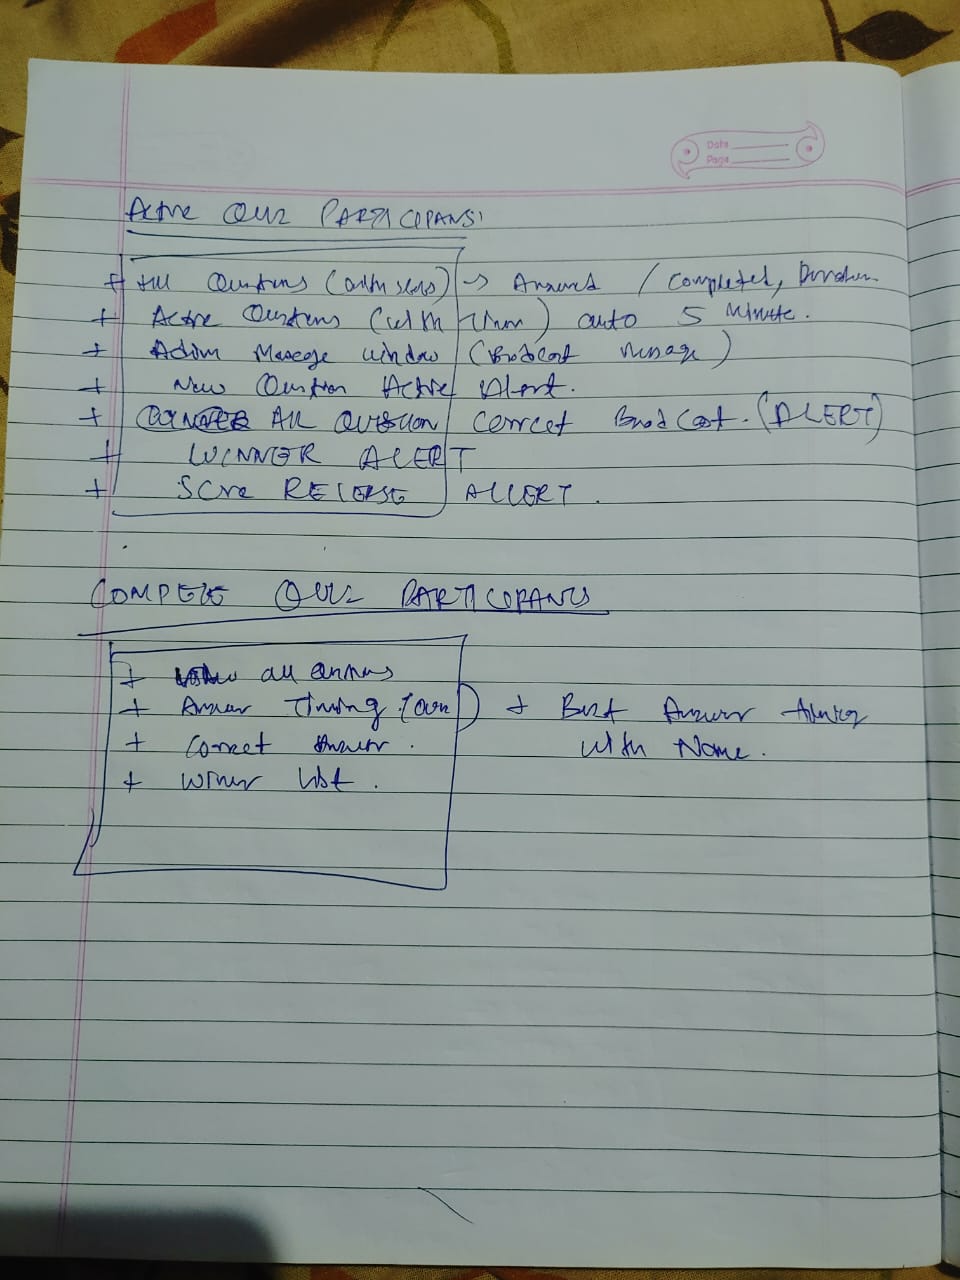 Date
Page
Active QUIZ PARTICIPANS
+ All Questions (with ) -> Answered / Completed, Duration
+ Active Questions (with Timer) auto 5 Minute.
+ Admin Message window (Brodcast message)
+ New Question Active Alert.
+ All QUESTION Correct Broad Cast. (ALERT)
+ WINNER ALERT
+ SCore REVERSE ALLERT.
COMPLETE QUIZ PARTICIPANTS
+ all answers
+ Answer Timing (own) + Best Answer
+ Correct Answer. with Name.
+ Winer list.